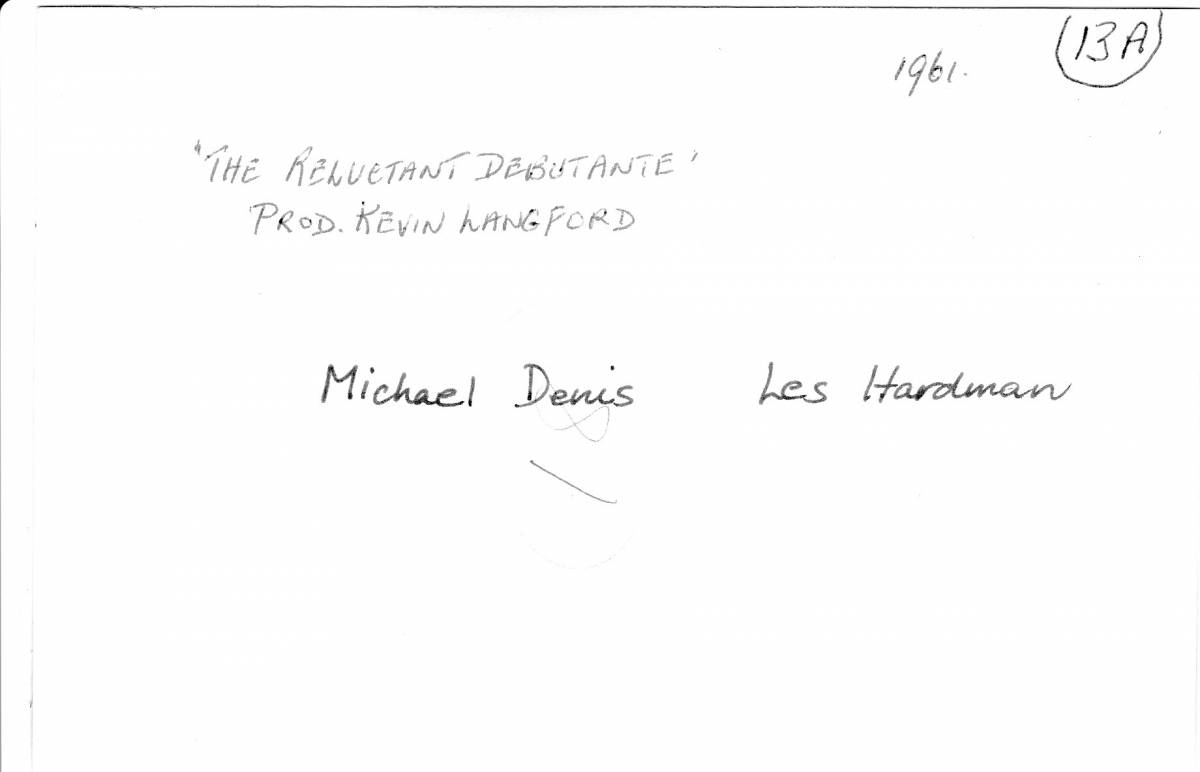 13A
1961.
"THE RELUCTANT DEBUTANTE'
PROD. KEVIN LANGFORD
Michael Denis Les Hardman